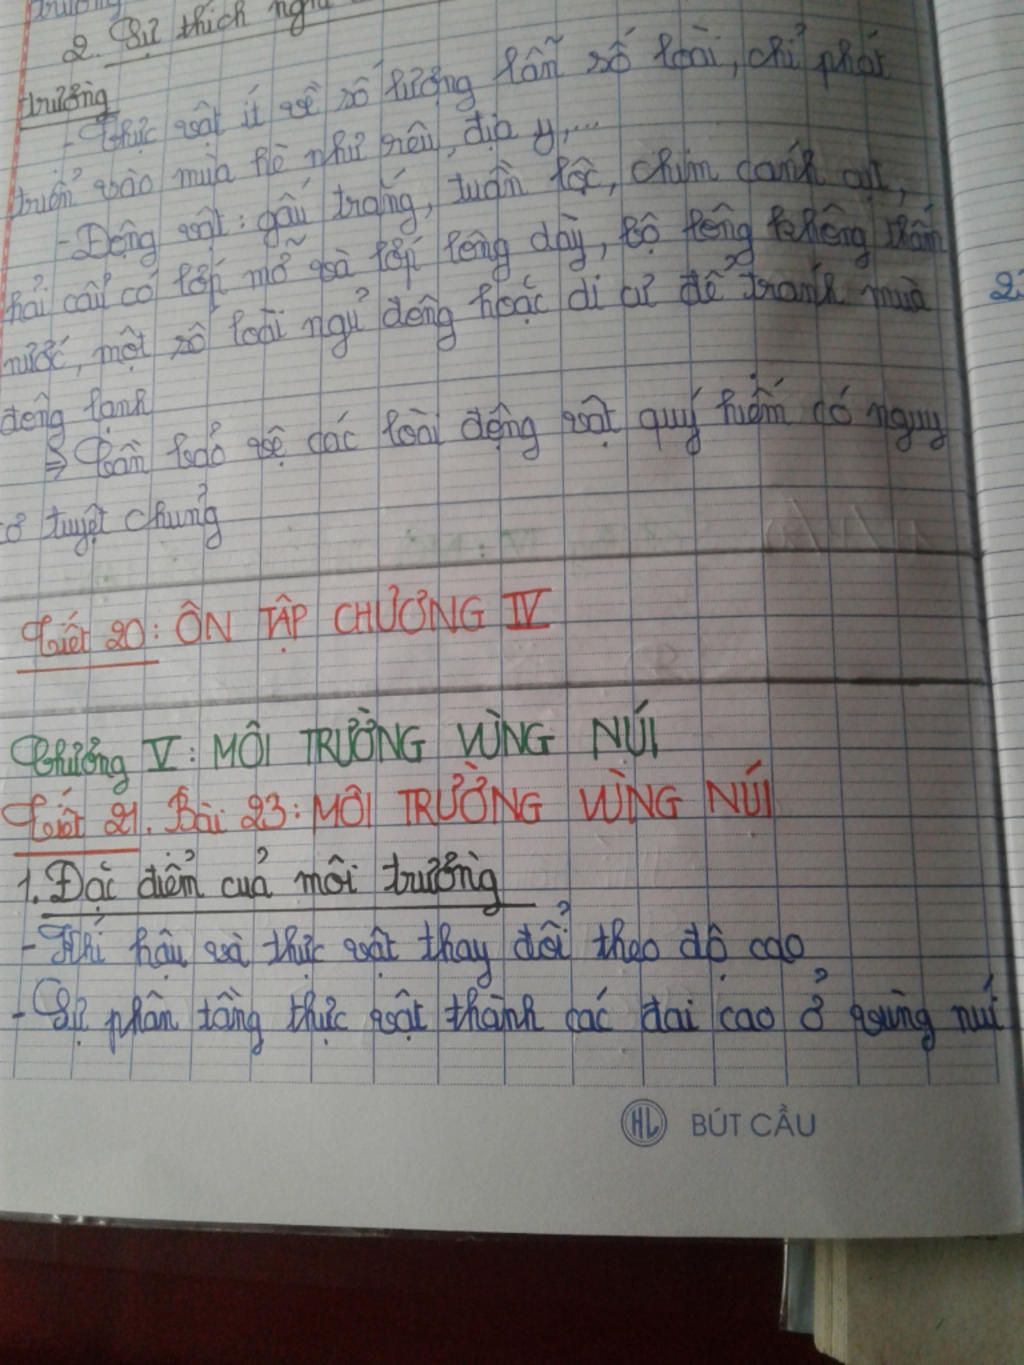 trường
2. Sự thích nghi
trường
- Thực vật ít về số lượng lẫn số loài, chỉ phát
triển vào mùa hè như rêu, địa y,...
- Động vật: gấu trắng, tuần lộc, chim cánh cụt,
hải cẩu có lớp mỡ và lớp lông dày, bộ lông không thấm
nước, một số loài ngủ đông hoặc di cư để tránh mùa
đông lạnh
⇒ Cần bảo vệ các loài động vật quý hiếm có nguy
cơ tuyệt chủng
Tiết 20: ÔN TẬP CHƯƠNG IV
Chương V: MÔI TRƯỜNG VÙNG NÚI
Tiết 21. Bài 23: MÔI TRƯỜNG VÙNG NÚI
1. Đặc điểm của môi trường
- Khí hậu và thực vật thay đổi theo độ cao
- Sự phân tầng thực vật thành các đai cao ở vùng núi
2.
HL BÚT CẦU